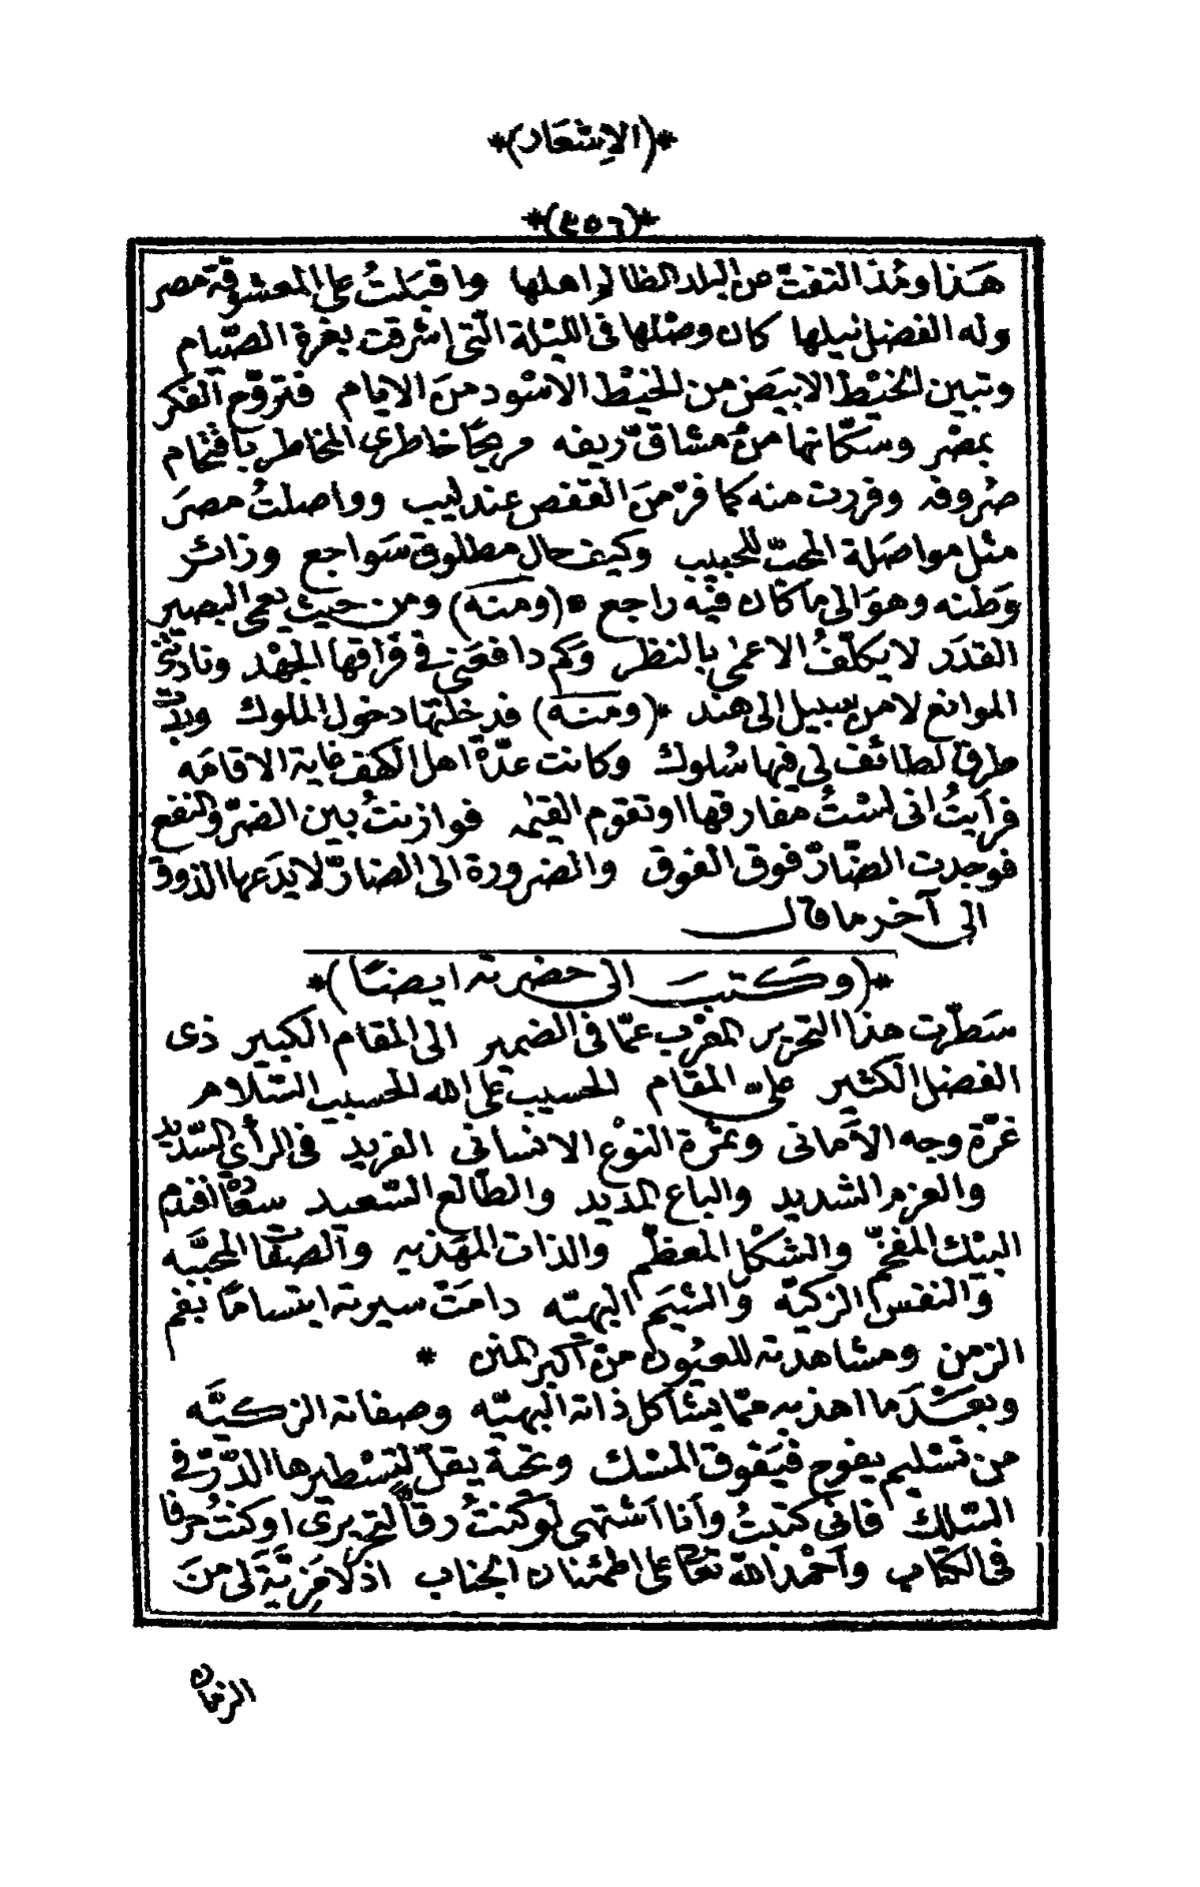 *(الاشعار)*
*(٤٥٦)*
هَذا ومُذ التفتّ عن البلد الظالم اهلها واقبَلتُ على المعشوقة مصر
وله الفضل نيلها كان وصْلها فى الليْلة الّتى اشرقت بغرة الصّيام
وتبين الخيْط الابيَض من الخيْط الاسْود منَ الايام فتروّح الفكر
بمصْر وسكّانها منْ مشاقّ ريفه مريحًا خاطرى المخاطر باقتحام
صُروفه وفررت منه كما فرّ منَ القفص عندليب وواصلتُ مصرَ
مثل مواصَلة المحبّ للحبيب وكيف حال مطلوق سَواجع وزائر
وَطنه وهوَ الى ما كان فيْه راجع * (ومنه) ومن حَيث يعمى البصير
القدَر لا يكلّفُ الاعمٰى بالنظر وَكم دافعَنى فى فرَاقها الجهْد ونادتْنى
الموانع لا من سبيل الى هند *(ومنه) فدخلتها دخول الملوك وبدَتْ
طرق لطائف لى فيها سُلوك وكانت عدّة اهل الكهف غاية الاقامَه
فرأيتُ انى لسْتُ مفارقها او تقوم القيٰمه فوازنتُ بين الضرّ والنفع
فوجدت الضّارّ فوق الفوق والضرورة الى الضارّ لا يدَعها الذوق
الى آخر ما قال
*(وَكتبَ الى حضرته ايضًا)*
سَطّرت هذا التحرْير المعْرب عمّا فى الضمير الى المقام الكبير ذى
الفضل الكثير علىّ المقَام الحسيب على الله الحسيب السّلام
غرّة وجه الأمانى وثمْرة النوْع الانسانى الفريد فى الرأى السّديد
والعزم الشديد والباع المديد والطّالع السّعيد سعَادْة افندم
البيْك المفخّم والشكْل المعظّم والذات المهَذبه والصفَات المحبّبَه
وَالنفس الزكيّة وَالشيَم البهيّه دامَتْ سيرته ابتسامًا بفم
الزمن ومشاهدته للعيُون من أكبر المنن *
وبعْد ما اهديه ممّا يشاكل ذاته البهيّه وصفاته الزكيَّه
من تسْليم يفوح فيَفوق المسْك وتحية يقلّ لتسْطيرها الدّرّ فى
السّلك فانّى كتبتُ وَأنا أشتهى لوْ كنتُ رقًّا لتحريرى او كنتُ حرفا
فى الكتاب وأحْمد الله تعَالى على اطمئنان الجناب اذ لا مَزيّةَ لى منَ
الزمان